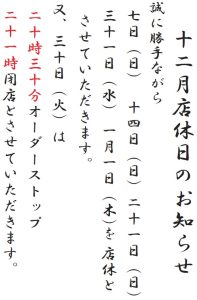 十二月店休日のお知らせ
誠に勝手ながら
七日（日）　十四日（日）二十一日（日）
三十一日（水）　一月一日（木）を店休と
させていただきます。
又、三十日（火）は
二十時三十分オーダーストップ
二十一時閉店とさせていただきます。